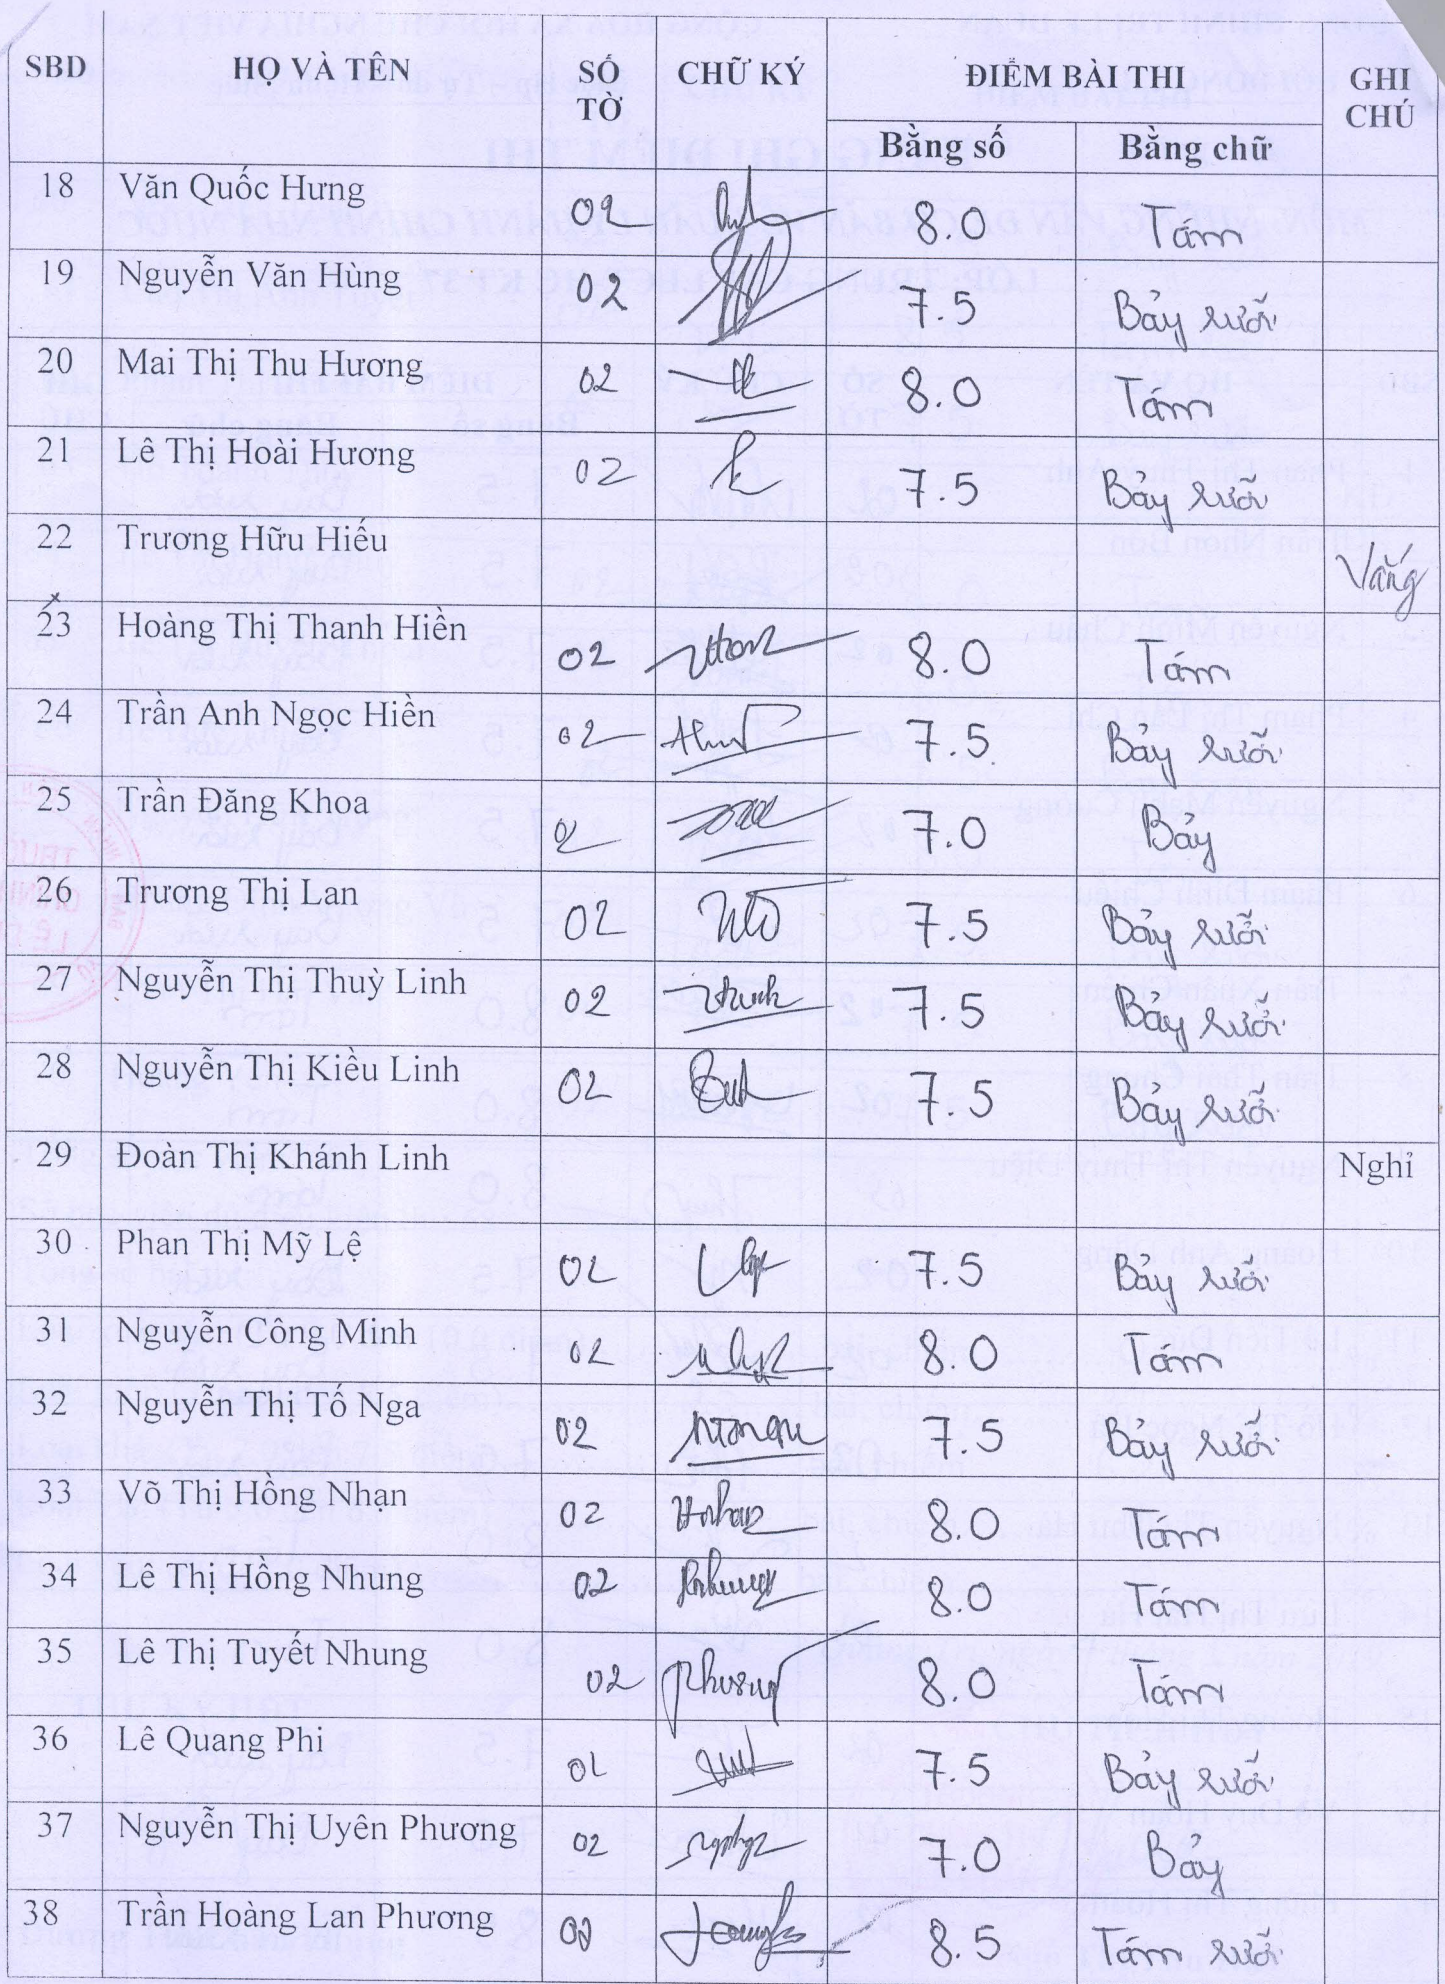 SBD HỌ VÀ TÊN SỐ TỜ CHỮ KÝ ĐIỂM BÀI THI GHI CHÚ
Bằng số Bằng chữ
18 Văn Quốc Hưng 02 8.0 Tám
19 Nguyễn Văn Hùng 02 7.5 Bảy rưỡi
20 Mai Thị Thu Hương 02 8.0 Tám
21 Lê Thị Hoài Hương 02 7.5 Bảy rưỡi
22 Trương Hữu Hiếu Vắng
23 Hoàng Thị Thanh Hiền 02 8.0 Tám
24 Trần Anh Ngọc Hiền 02 7.5 Bảy rưỡi
25 Trần Đăng Khoa 02 7.0 Bảy
26 Trương Thị Lan 02 7.5 Bảy rưỡi
27 Nguyễn Thị Thuỳ Linh 02 7.5 Bảy rưỡi
28 Nguyễn Thị Kiều Linh 02 7.5 Bảy rưỡi
29 Đoàn Thị Khánh Linh Nghỉ
30 Phan Thị Mỹ Lệ 02 7.5 Bảy rưỡi
31 Nguyễn Công Minh 02 8.0 Tám
32 Nguyễn Thị Tố Nga 02 7.5 Bảy rưỡi
33 Võ Thị Hồng Nhạn 02 8.0 Tám
34 Lê Thị Hồng Nhung 02 8.0 Tám
35 Lê Thị Tuyết Nhung 02 8.0 Tám
36 Lê Quang Phi 02 7.5 Bảy rưỡi
37 Nguyễn Thị Uyên Phương 02 7.0 Bảy
38 Trần Hoàng Lan Phương 02 8.5 Tám rưỡi